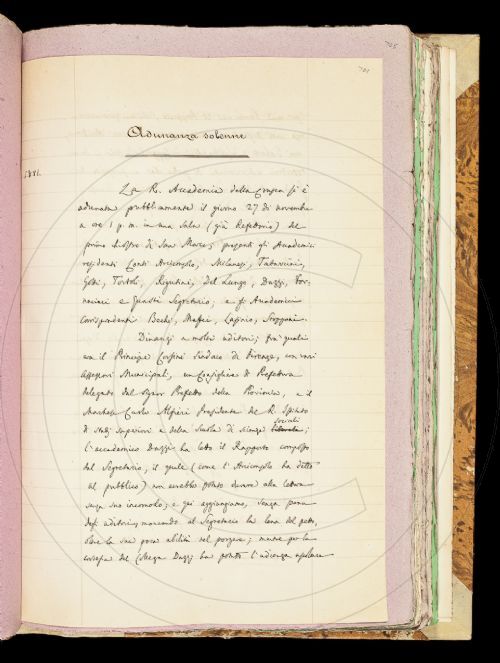 705
701
Adunanza solenne
1881.
La R. Accademia della Crusca si è
adunata pubblicamente il giorno 27 di novembre
a ore 1 p. m. in una Sala (già Refettorio) del
primo chiostro di San Marco; presenti gli Accademici
residenti Conti Arciconsolo, Milanesi, Tabarrini,
Gotti, Tortoli, Rigutini, Del Lungo, Dazzi, For-
naciari e Guasti Segretario; e gli Accademici
corrispondenti Bechi, Maffei, Lasinio,
Dinanzi a molti uditori; fra' quali
era il Principe Corsini Sindaco di Firenze, con vari
Assessori Municipali, un Consigliere di Prefettura
delegato dal signor Prefetto della Provincia, e il
Marchese Carlo Alfieri Presidente del R. Istituto
di Studi Superiori e della Scuola di scienze
sociali
l'accademico Dazzi ha letto il Rapporto composto
dal Segretario, il quale (come l'Arciconsolo ha detto
al pubblico) non avrebbe potuto durare alla lettura
senza suo incomodo; e qui aggiungiamo, senza pena
degli uditori, mancando al Segretario la lena del petto,
oltre la sua poca abilità nel porgere; mentre per la
cortesia del Collega Dazzi ha potuto l'udienza